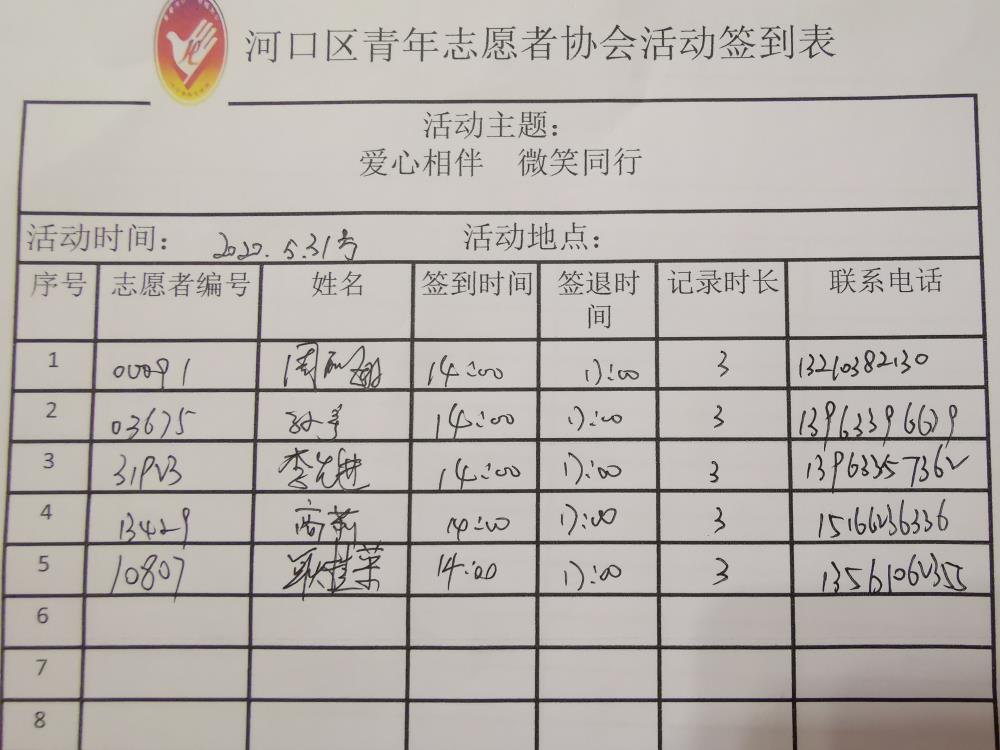 河口区青年志愿者协会活动签到表
活动主题：
爱心相伴 微笑同行
活动时间： 2022.5.31号 活动地点：
序号 志愿者编号 姓名 签到时间 签退时间 记录时长 联系电话
1 00091 周 14:00 17:00 3 13210382130
2 03675 孙 14:00 17:00 3 13963396679
3 31923 李先进 14:00 17:00 3 13963357362
4 13429 高莉 14:00 17:00 3 15166236336
5 10807 耿桂荣 14:00 17:00 3 13561062355
6
7
8